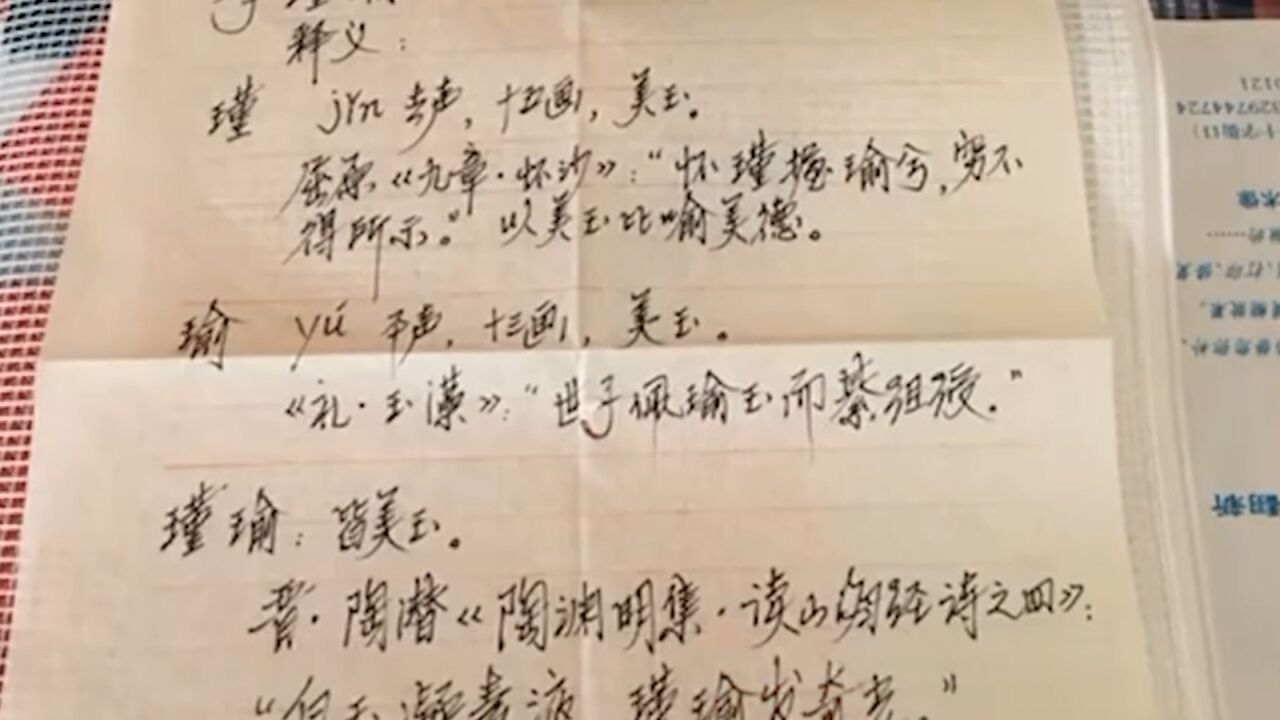 释义：
瑾 jǐn 去声，十五画，美玉。
屈原《九章·怀沙》：“怀瑾握瑜兮，穷不
得所示。” 以美玉比喻美德。
瑜 yú 平声，十三画，美玉。
《礼·玉藻》：“世子佩瑜玉而綦组绶.”
瑾瑜：皆美玉。
晋·陶潜《陶渊明集·读山海经诗之四》：
“白玉凝素液 瑾瑜发奇光.”
0121
029744724
翻新